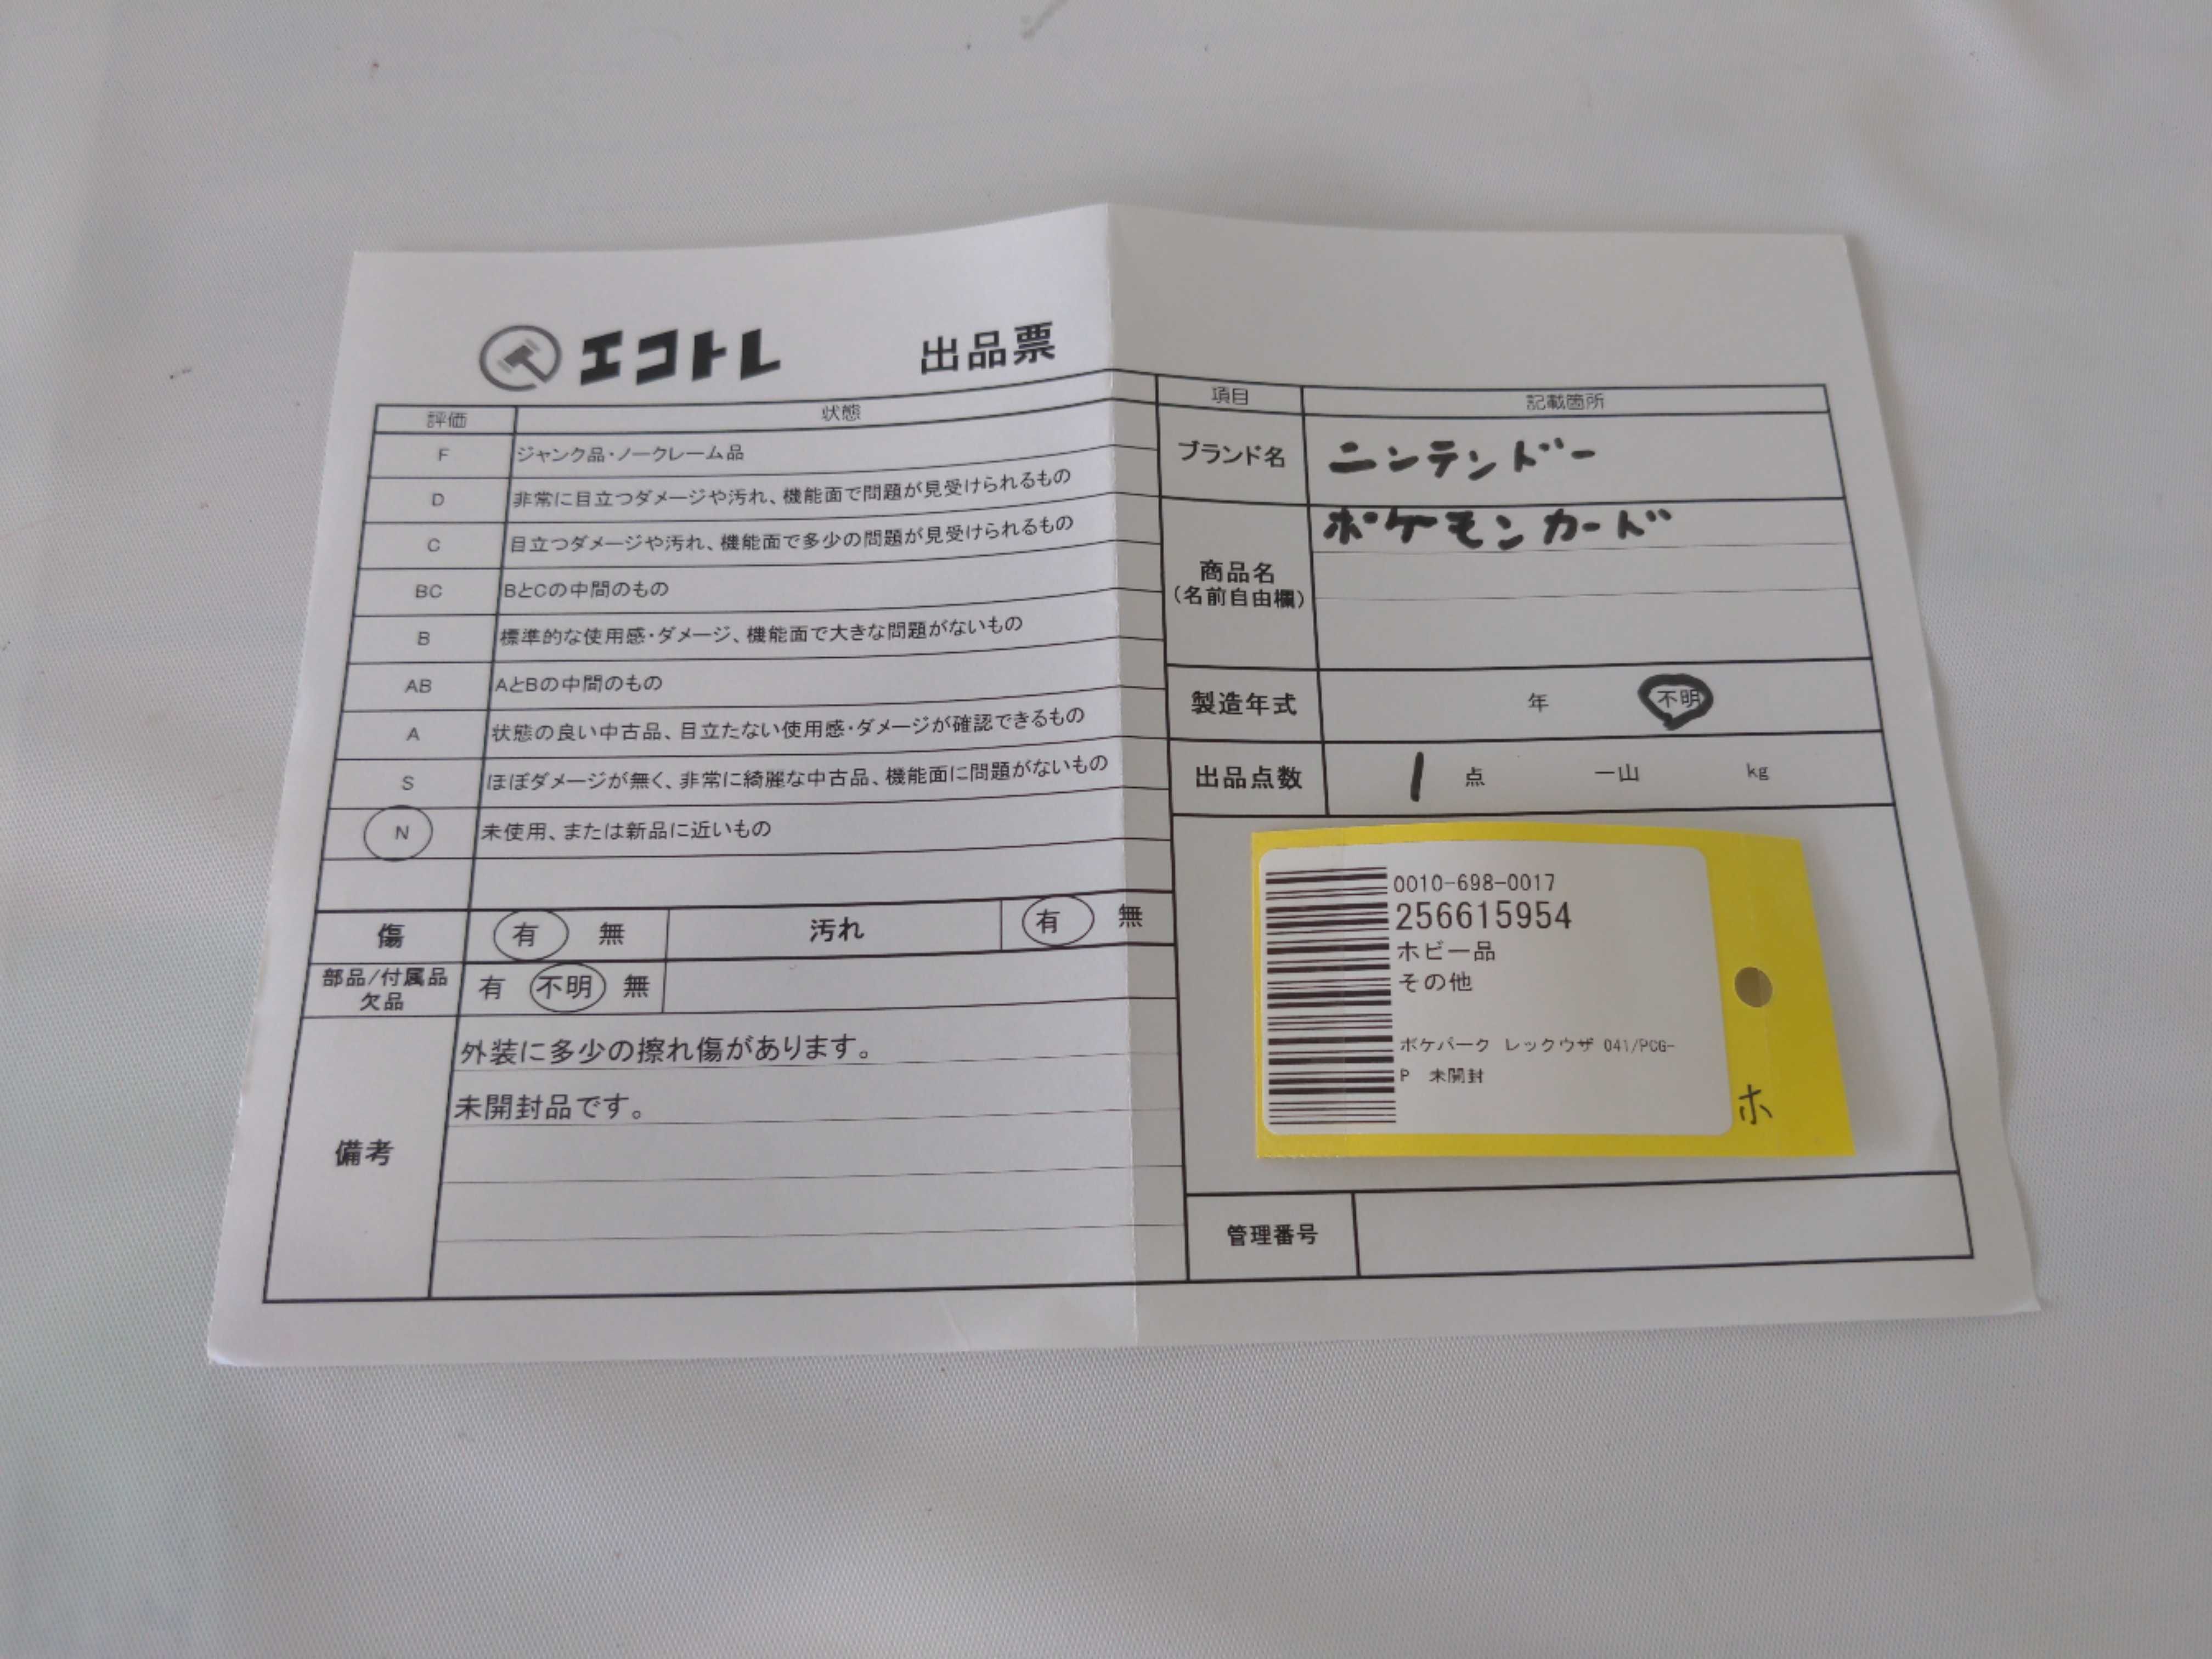 エコトレ 出品票
評価 状態
F ジャンク品・ノークレーム品
D 非常に目立つダメージや汚れ、機能面で問題が見受けられるもの
C 目立つダメージや汚れ、機能面で多少の問題が見受けられるもの
BC BとCの中間のもの
B 標準的な使用感・ダメージ、機能面で大きな問題がないもの
AB AとBの中間のもの
A 状態の良い中古品、目立たない使用感・ダメージが確認できるもの
S ほぼダメージが無く、非常に綺麗な中古品、機能面に問題がないもの
N 未使用、または新品に近いもの
傷 有 無 汚れ 有 無
部品/付属品
欠品
有 不明 無
備考
外装に多少の擦れ傷があります。
未開封品です。
項目 記載箇所
ブランド名 ニンテンドー
商品名
(名前自由欄)
ポケモンカード
製造年式 年 不明
出品点数 1 点 一山 kg
0010-698-0017
256615954
ホビー品
その他
ポケパーク レックウザ 041/PCG-
P 未開封
ホ
管理番号